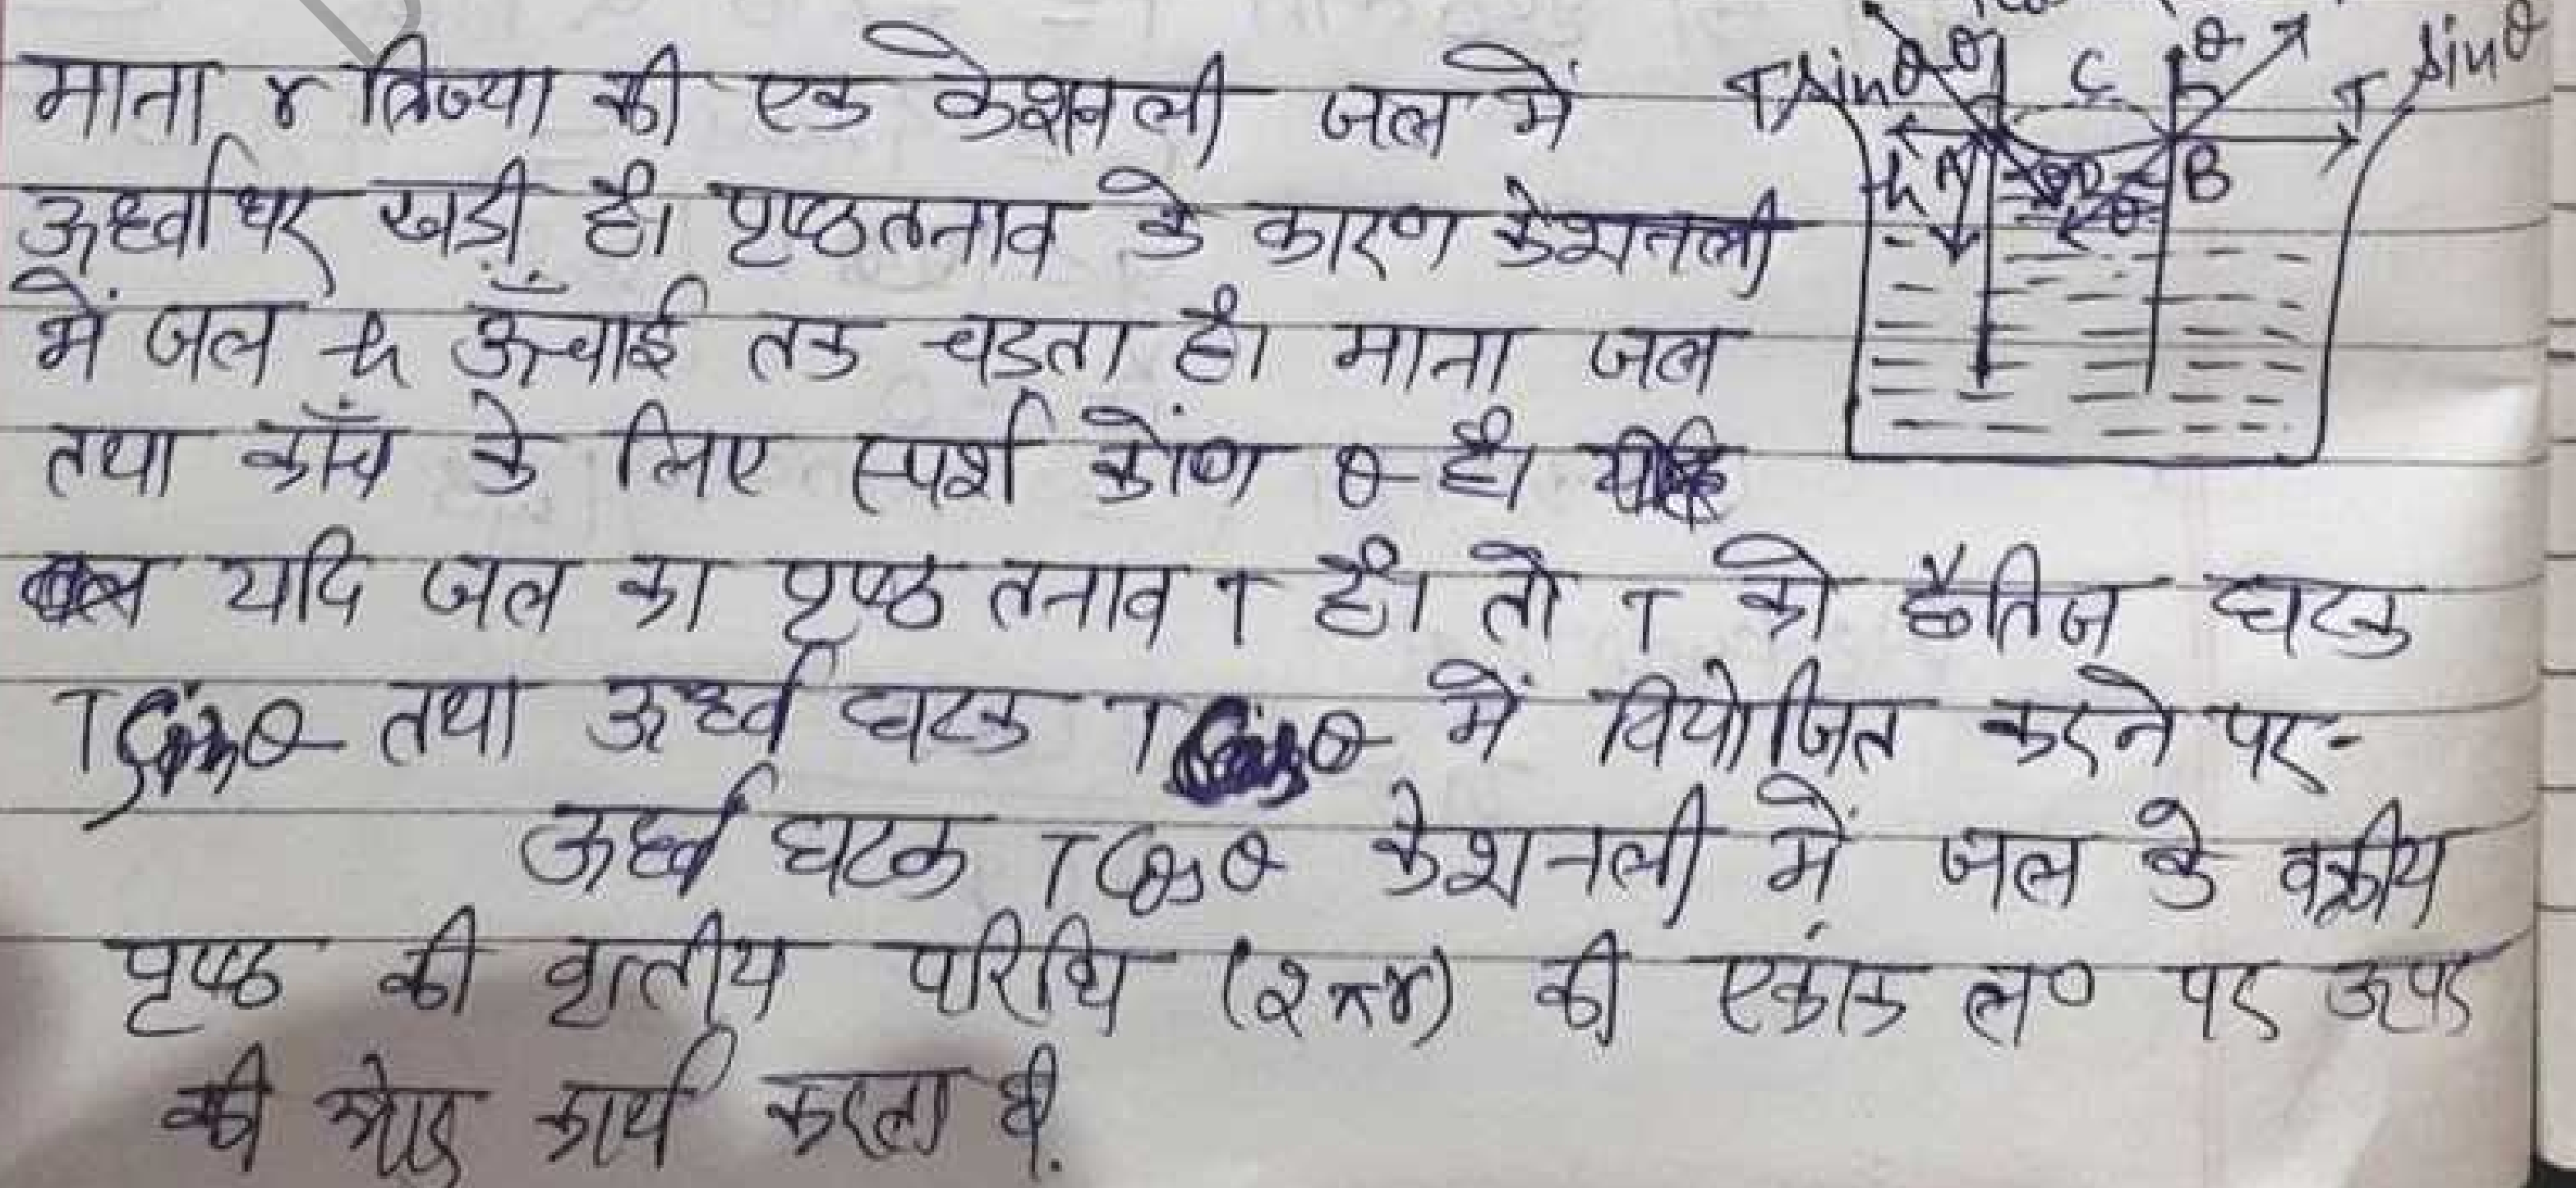 माना r त्रिज्या की एक केशनली जल में
ऊर्ध्वाधर खडी है। पृष्ठतनाव के कारण केशनली
में जल h ऊँचाई तक चडता है। माना जल
तथा काँच के लिए स्पर्श कोंण θ है।
यदि जल का पृष्ठ तनाव T है। तो T को क्षैतिज घटक
T Sinθ तथा ऊर्ध्व घटक T Cosθ में वियोजित करने पर-
ऊर्ध्व घटक T Cosθ केशनली में जल के वक्रीय
पृष्ठ की वृत्तीय परिधि (2πr) की एकांक ल० पर ऊपर
की ओर कार्य करता है.
T sinθ θ C θ T sinθ
h A B